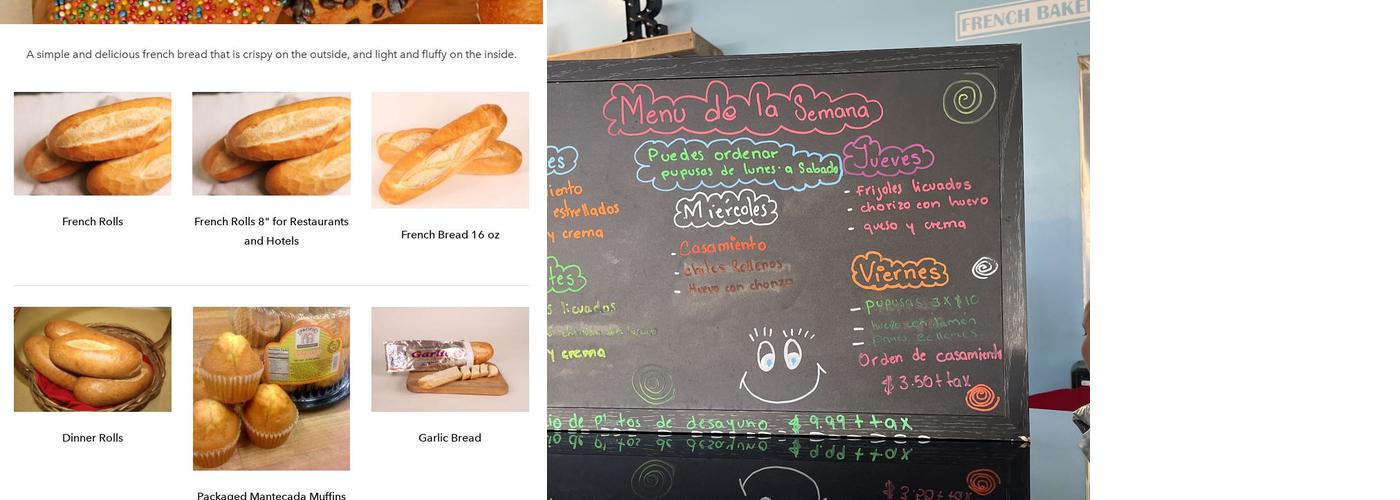 A simple and delicious french bread that is crispy on the outside, and light and fluffy on the inside.
French Rolls
French Rolls 8" for Restaurants
and Hotels
French Bread 16 oz
Garlic
Dinner Rolls
Garlic Bread
Packaged Mantecada Muffins
FRENCH BAKE
Menu de la Semana
es
iento
estrellados
y crema
tes
s licuados
y crema
Puedes ordenar
pupusas de lunes a Sabado
Miercoles
- Casamiento
- Chiles Rellenos
- Huevo con chorizo
Jueves
- Frijoles licuados
- chorizo con huevo
- queso y crema
Viernes
- pupusas 3 x $10
- huevo con Jamon
-
Orden de casamiento
$3.50 + tax
io de pl tos de desayuno $ 9.99 + tax